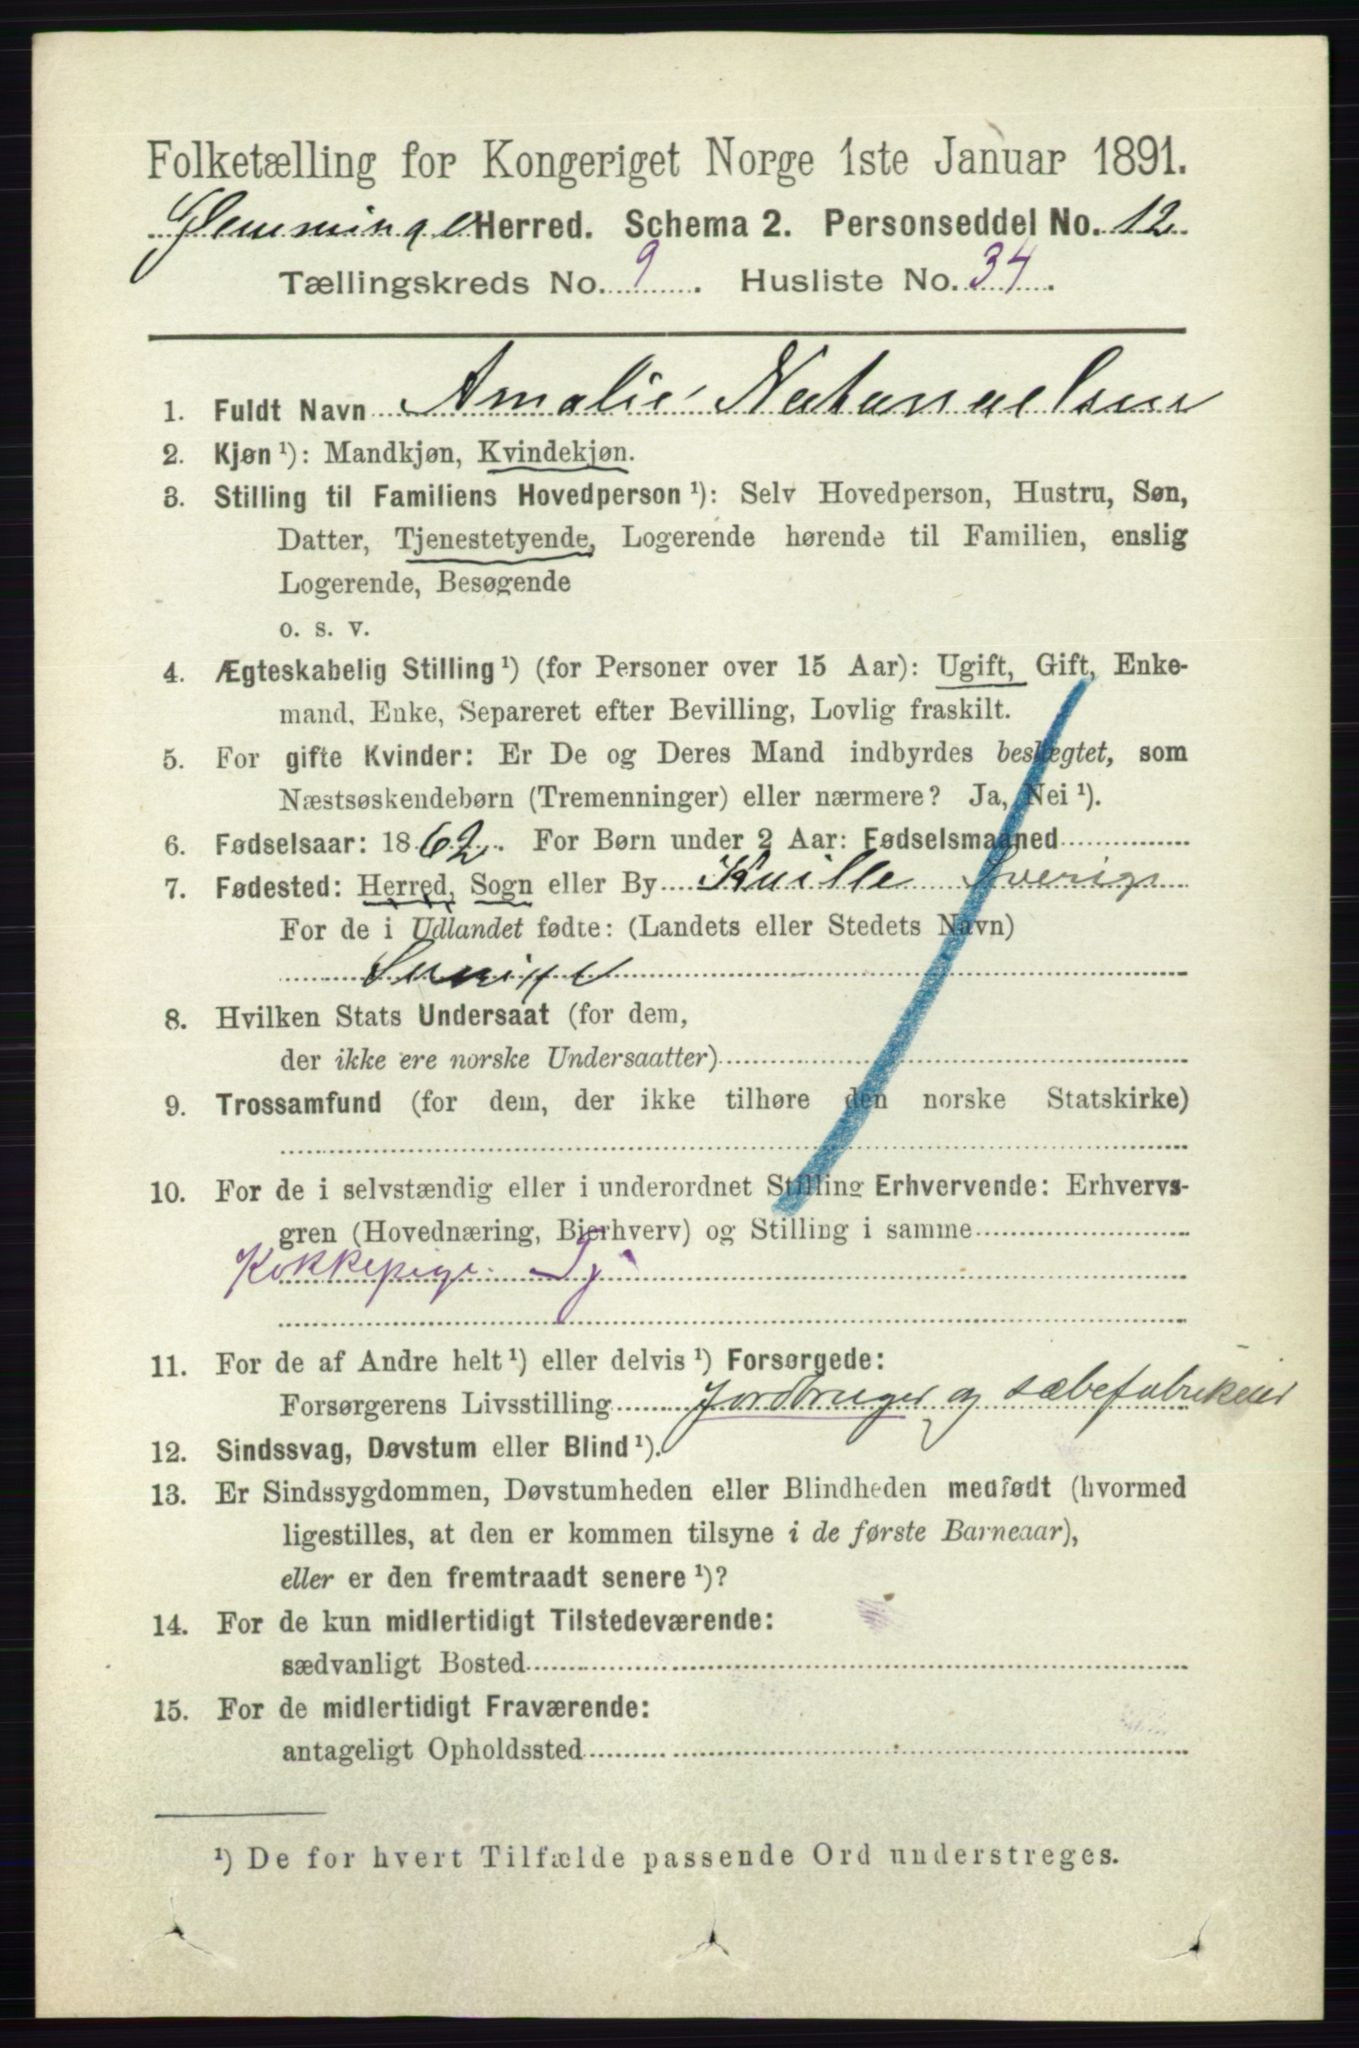 Folketælling for Kongeriget Norge 1ste Januar 1891.
Glemminge Herred. Schema 2. Personseddel No. 12
Tællingskreds No. 9. Husliste No. 34.
1. Fuldt Navn Amalie Natanaelsen
2. Kjøn ¹): Mandkjøn, Kvindekjøn.
3. Stilling til Familiens Hovedperson ¹): Selv Hovedperson, Hustru, Søn,
Datter, Tjenestetyende, Logerende hørende til Familien, enslig
Logerende, Besøgende
o. s. v.
4. Ægteskabelig Stilling ¹) (for Personer over 15 Aar): Ugift, Gift, Enke-
mand, Enke, Separeret efter Bevilling, Lovlig fraskilt.
5. For gifte Kvinder: Er De og Deres Mand indbyrdes beslægtet, som
Næstsøskendebørn (Tremenninger) eller nærmere? Ja, Nei ¹).
6. Fødselsaar: 1862. For Børn under 2 Aar: Fødselsmaaned
7. Fødested: Herred, Sogn eller By Kville Sverige
For de i Udlandet fødte: (Landets eller Stedets Navn)
8. Hvilken Stats Undersaat (for dem,
der ikke ere norske Undersaatter)
9. Trossamfund (for dem, der ikke tilhøre den norske Statskirke)
10. For de i selvstændig eller i underordnet Stilling Erhvervende: Erhvervs-
gren (Hovednæring, Bierhverv) og Stilling i samme
Kokkepige. Tj
11. For de af Andre helt ¹) eller delvis ¹) Forsørgede:
Forsørgerens Livsstilling Jordbruger og sæbefabrikeier
12. Sindssvag, Døvstum eller Blind ¹).
13. Er Sindssygdommen, Døvstumheden eller Blindheden medfødt (hvormed
ligestilles, at den er kommen tilsyne i de første Barneaar),
eller er den fremtraadt senere ¹)?
14. For de kun midlertidigt Tilstedeværende:
sædvanligt Bosted
15. For de midlertidigt Fraværende:
antageligt Opholdssted
¹) De for hvert Tilfælde passende Ord understreges.